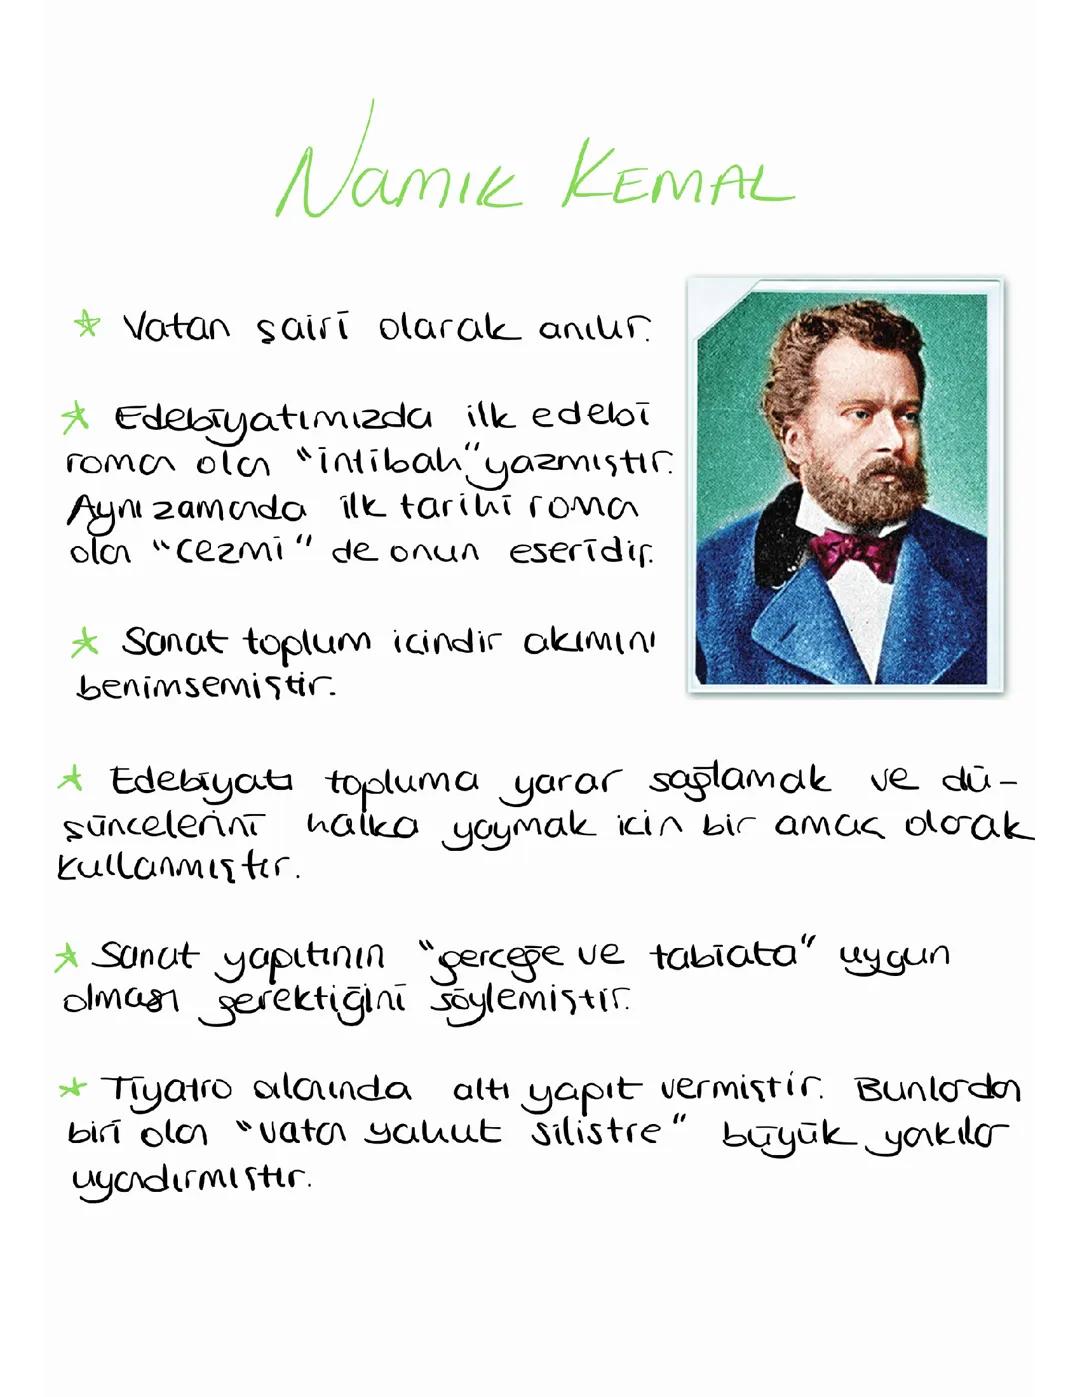 Namık KEMAL
* Vatan şairi olarak anılır.
* Edebiyatımızda ilk edebi
roman olan "intibah" yazmıştır.
Aynı zamanda ilk tarihi roman
olan "Cezmi" de onun eseridir.
* Sanat toplum icindir akımını
benimsemiştir.
* Edebiyatı topluma yarar sağlamak ve dü-
şüncelerini halka yaymak icin bir amaç olarak
kullanmıştır.
* Sanat yapıtının "gerceğe ve tabiata" uygun
olması gerektiğini söylemiştir.
* Tiyatro alanında altı yapıt vermiştir. Bunlardan
biri olan "vatan yahut silistre" büyük yankılar
uyandırmıştır.